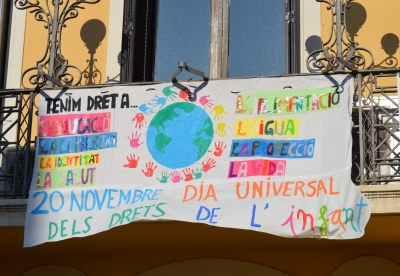 TENIM DRET A...
L'EDUCACIÓ
LA LLIBERTAT
LA IDENTITAT
LA SALUT
L'ALIMENTACIÓ
L'AIGUA
LA PROTECCIÓ
LA VIDA
20 NOVEMBRE DIA UNIVERSAL
DELS DRETS DE L' infant